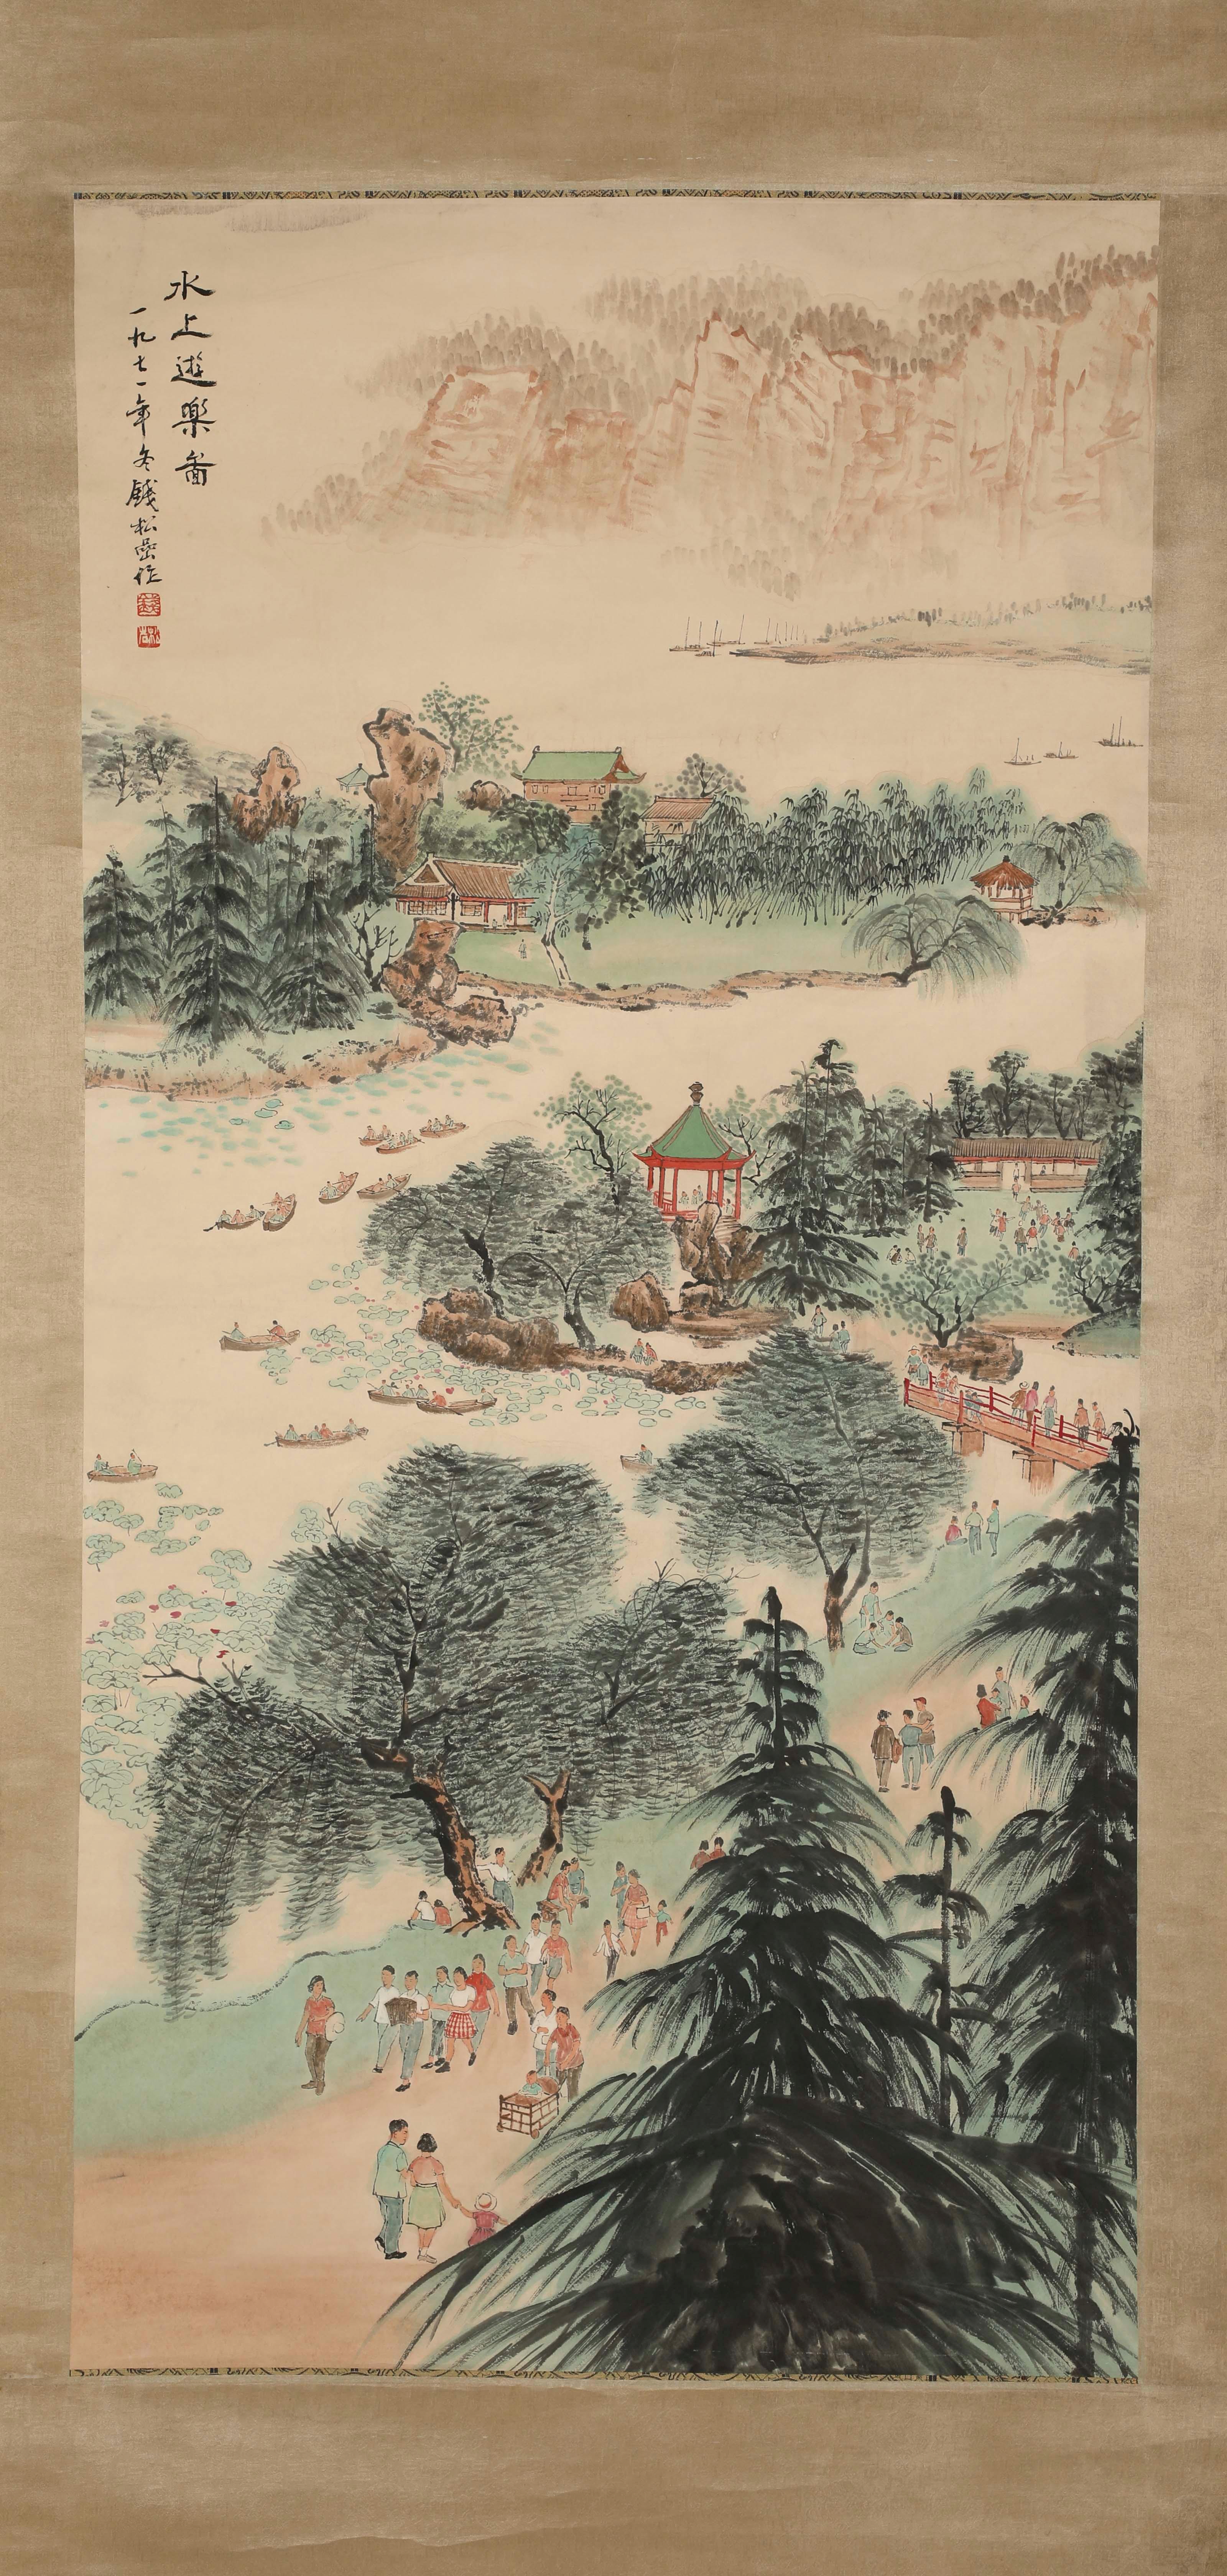 水上遊樂圖
一九七一年冬錢松嵒作
錢
松嵒